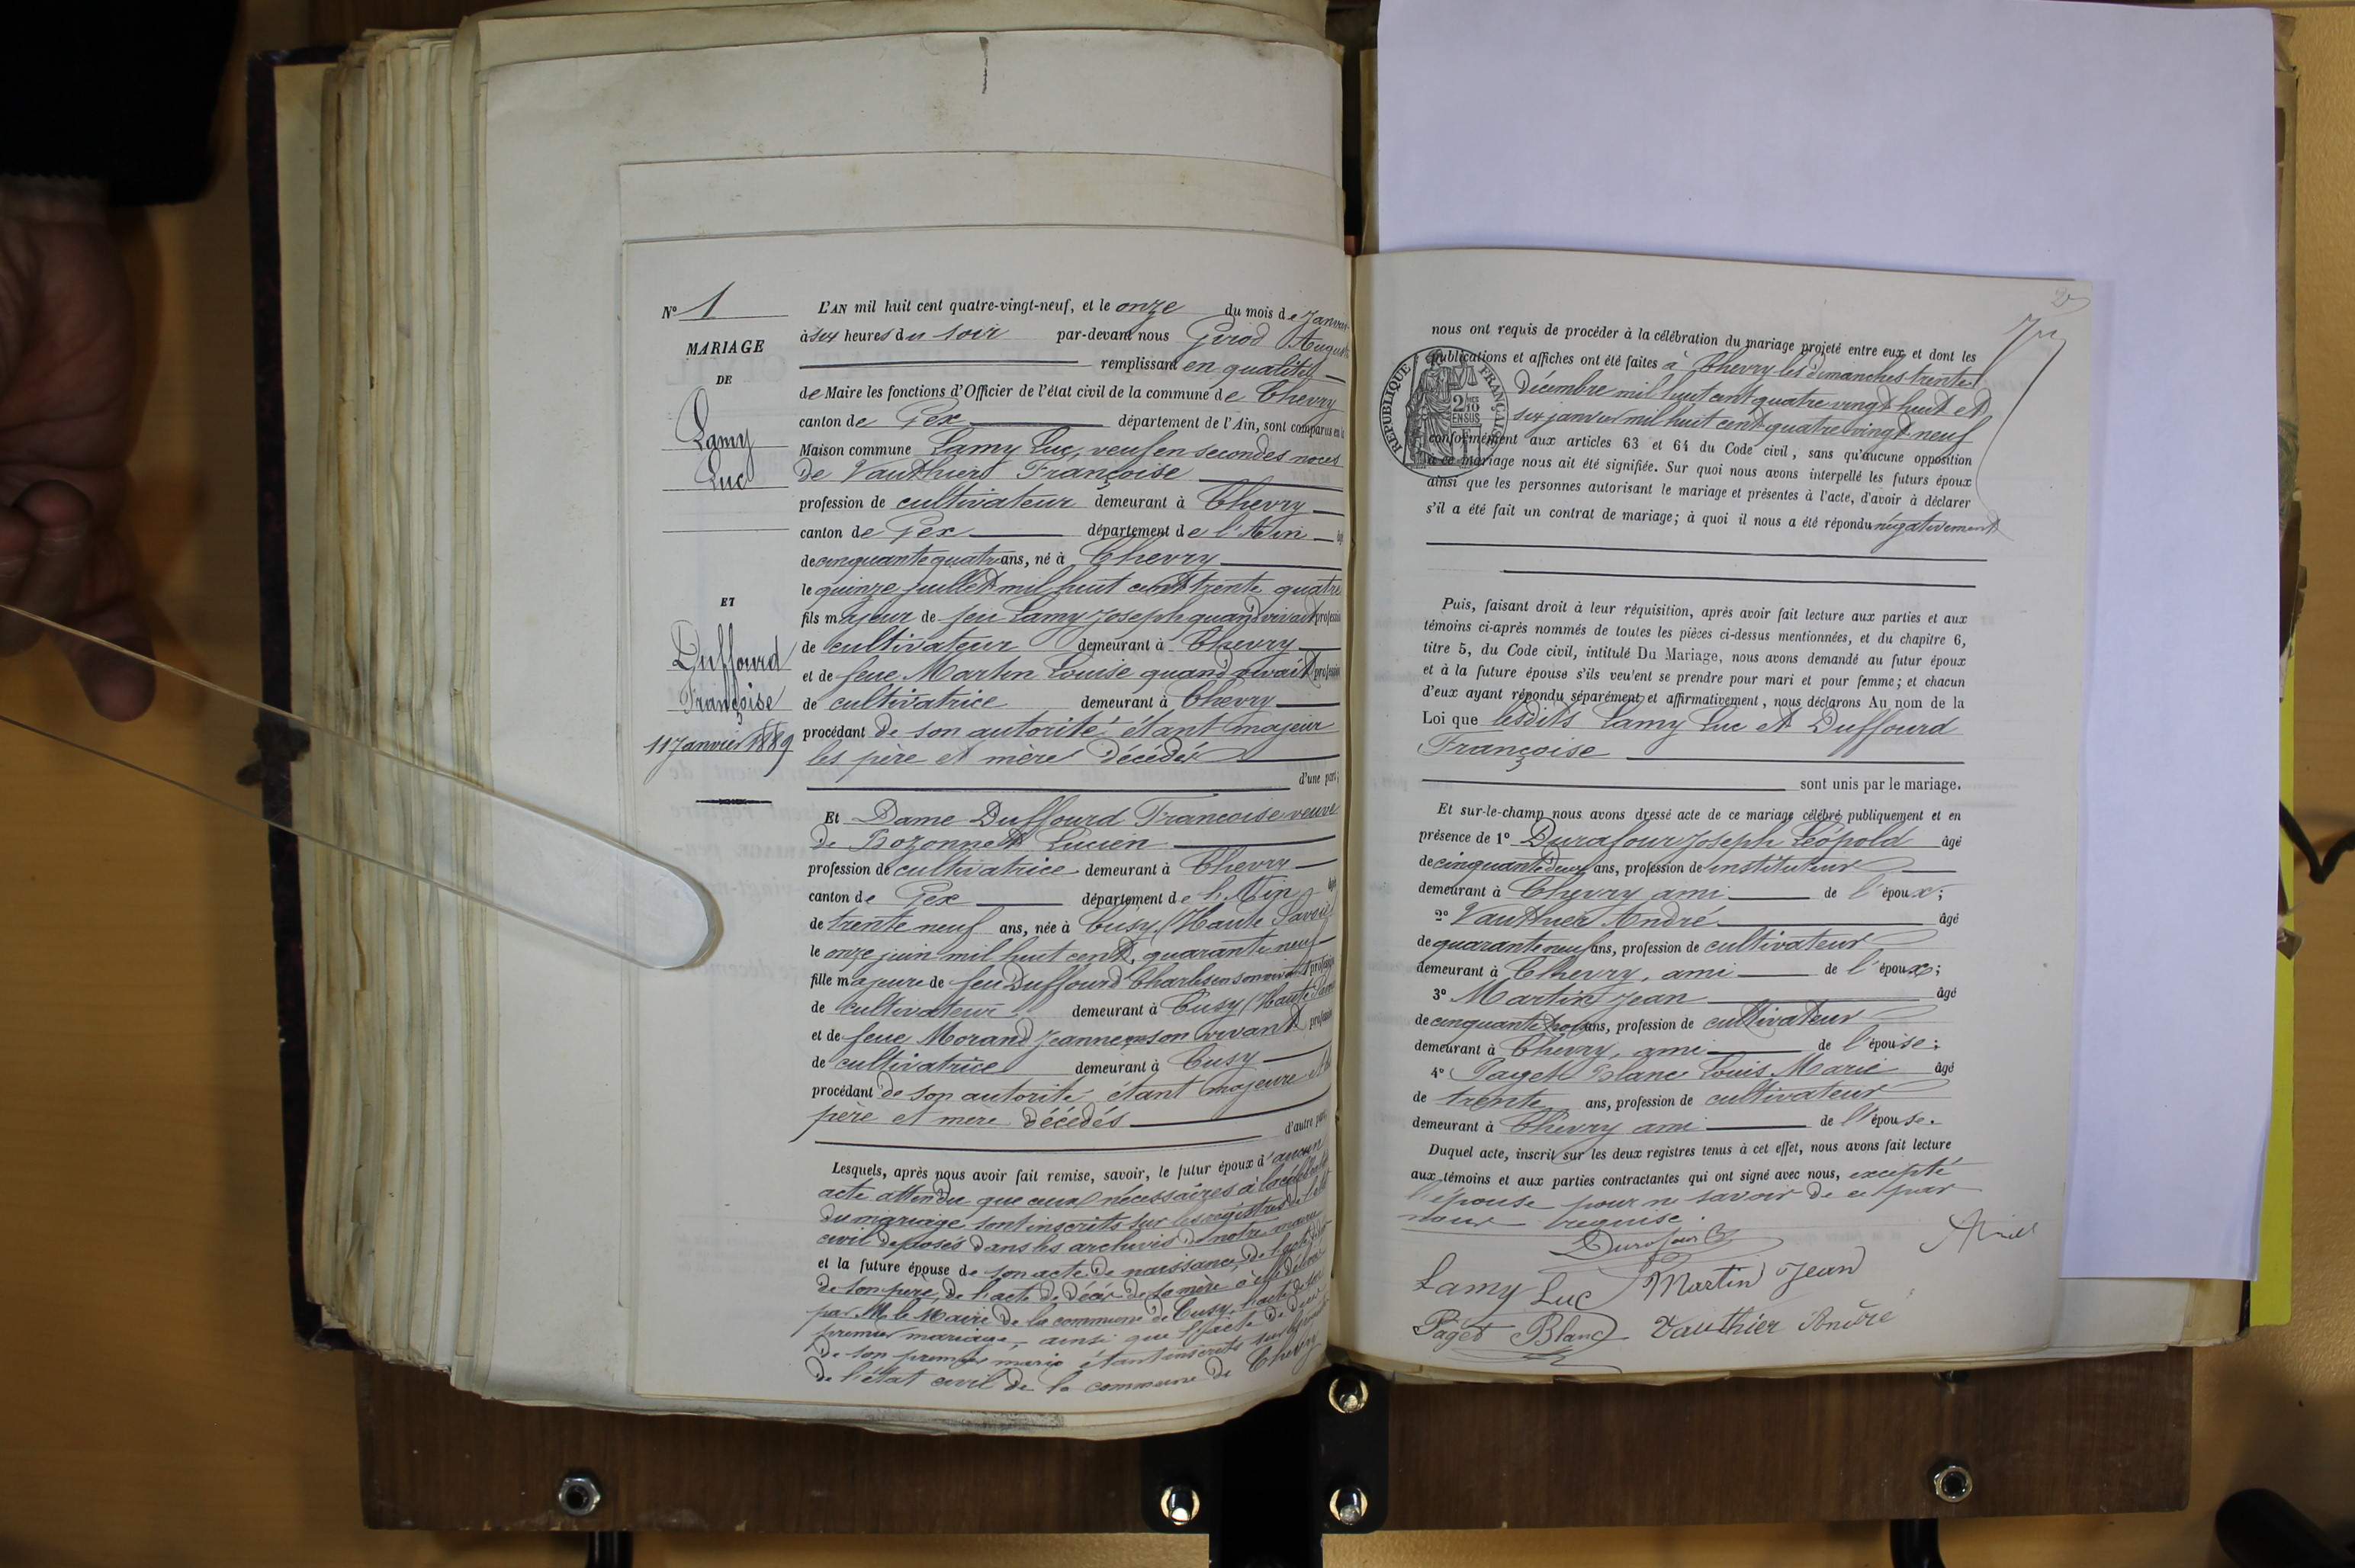 N° 1
MARIAGE
DE
Lamy
Luc
ET
Duffourd
Françoise
11 Janvier 1889
L'AN mil huit cent quatre-vingt-neuf, et le onze du mois de Janvier
à six heures du soir par-devant nous Girod Auguste
remplissant en qualité
de Maire les fonctions d'Officier de l'état civil de la commune de Chevry
canton de Gex département de l'Ain, sont comparus en la
Maison commune Lamy Luc, veuf en secondes noces
de Vauthier Françoise
profession de cultivateur demeurant à Chevry
canton de Gex département de l'Ain âgé
de cinquante quatre ans, né à Chevry
le quinze juillet mil huit cent trente quatre
fils majeur de feu Lamy Joseph quand vivait profession
de cultivateur demeurant à Chevry
et de feue Martin Louise quand vivait profession
de cultivatrice demeurant à Chevry
procédant de son autorité étant majeur
les père et mère décédés
d'une part;
Et Dame Duffourd Francoise veuve
de Bozonnet Lucien
profession de cultivatrice demeurant à Chevry
canton de Gex département de l'Ain âgée
de trente neuf ans, née à Cusy (Haute Savoie)
le onze juin mil huit cent quarante neuf
fille majeure de feu Duffourd Charles en son vivant profession
de cultivateur demeurant à Cusy (Haute Savoie)
et de feue Morand Jeanne en son vivant profession
de cultivatrice demeurant à Cusy
procédant de son autorité étant majeure et les
père et mère décédés
d'autre part,
Lesquels, après nous avoir fait remise, savoir, le futur époux d'aucun
acte attendu que ceux nécessaires à la célébration
du mariage sont inscrits sur les registres de l'état
civil déposés dans les archives de notre mairie
et la future épouse de son acte de naissance, de l'acte de décès
de son père, de l'acte de décès de sa mère à elle délivrés
par M. le Maire de la commune de Cusy, l'acte de son
premier mariage, ainsi que l'acte de décès
de son premier mari étant inscrits sur les registres
de l'état civil de la commune de Chevry
2
nous ont requis de procéder à la célébration du mariage projeté entre eux et dont les
publications et affiches ont été faites à Chevry les dimanches trente
décembre mil huit cent quatre vingt huit et
six janvier mil huit cent quatre vingt neuf
RÉPUBLIQUE FRANÇAISE
conformément aux articles 63 et 64 du Code civil, sans qu'aucune opposition
à ce mariage nous ait été signifiée. Sur quoi nous avons interpellé les futurs époux
ainsi que les personnes autorisant le mariage et présentes à l'acte, d'avoir à déclarer
s'il a été fait un contrat de mariage; à quoi il nous a été répondu négativement
Puis, faisant droit à leur réquisition, après avoir fait lecture aux parties et aux
témoins ci-après nommés de toutes les pièces ci-dessus mentionnées, et du chapitre 6,
titre 5, du Code civil, intitulé Du Mariage, nous avons demandé au futur époux
et à la future épouse s'ils veulent se prendre pour mari et pour femme; et chacun
d'eux ayant répondu séparément et affirmativement, nous déclarons Au nom de la
Loi que lesdits Lamy Luc et Duffourd
Françoise
sont unis par le mariage.
Et sur-le-champ nous avons dressé acte de ce mariage célébré publiquement et en
présence de 1° Durafour Joseph Léopold âgé
de cinquante deux ans, profession de instituteur
demeurant à Chevry ami de l'époux;
2° Vauthier André âgé
de quarante neuf ans, profession de cultivateur
demeurant à Chevry, ami de l'époux;
3° Martin Jean âgé
de cinquante trois ans, profession de cultivateur
demeurant à Chevry, ami de l'épouse;
4° Paget Blanc Louis Marie âgé
de trente ans, profession de cultivateur
demeurant à Chevry ami de l'épouse.
Duquel acte, inscrit sur les deux registres tenus à cet effet, nous avons fait lecture
aux témoins et aux parties contractantes qui ont signé avec nous, excepté
l'épouse pour ne savoir de ce par
nous requise.
Durafour
Lamy Luc Martin Jean
Paget Blanc Vauthier André